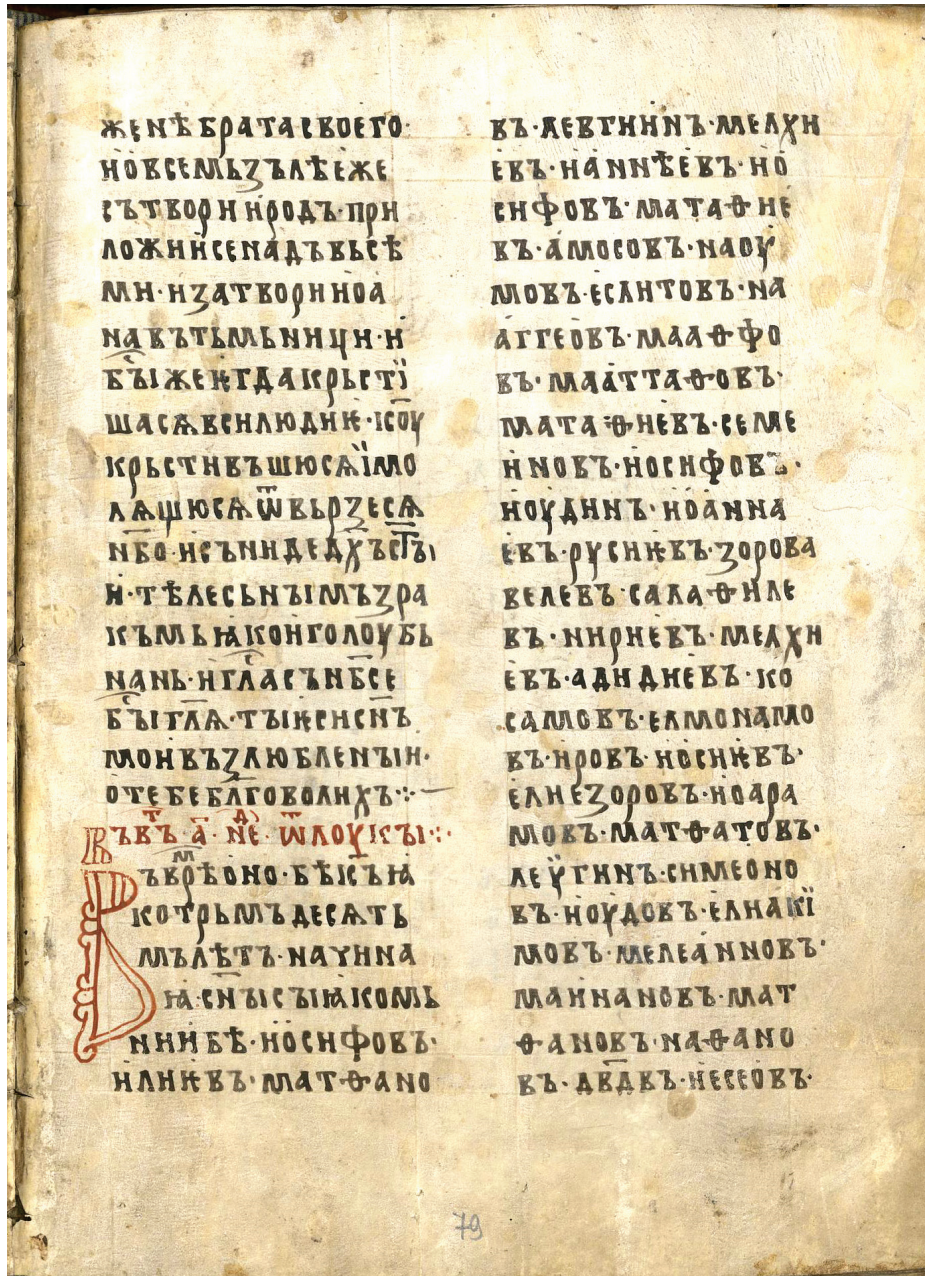 женѣбратасвоего·
новсемьзълѣеже
сътвориродъ·при
ложиисенадъвьсѣ
ми·изатворииоа
навътьмьници·и
бы҃жеѥгдакрьстї
шасѧвсилюдиѥ·ісоу
крьстивъшюсѧїмо
лѧщюсѧѿвьрзесѧ
нб҃о·исънидедх҃ъст҃ъı
и·тѣлесьнымъзра
къмьꙗконголоубь
нань·игласънб҃се
бы҃гл҃ѧ·тыѥсисн҃ъ
мои҆възлюбленыи·
отебебл҃говолихъ·:·–
Въвт҃ъ·а҃·нд҃е·ѿлоукы·:·
Въврм҃ѣоно·бѣі҃съꙗ
котрьмъдесѧть
мълѣтъ·начина
ꙗ·сн҃ысыꙗкомь
ниибѣ·иосифовъ·
илиѥвъ·матѳано
въ·левгиинъ·мелхи
евъ·наннѣевъ·ио
сифовъ·мататѳие
въ·амосовъ·наоу
мовъ·еслитовъ·на
аггеовъ·мааѳфо
въ·мааттаѳовъ·
матаѳиевъ·семе
иновъ·иосифовъ·
иоудинъ·иоанна
евъ·русиѥвъ·зорова
велевъ·салаѳиле
въ·нириевъ·мелхи
евъ·адидиевъ·ко
самовъ·елмонамо
въ·ировъ·иосиѥвъ·
елиезоровъ·иоара
мовъ·матѳатовъ·
леѵгинъ·симеоно
въ·иоудовъ·елиакї
мовъ·мелеанновъ·
маинановъ·мат
ѳановъ·наѳано
въ·дв҃двъ·иесеовъ·
79